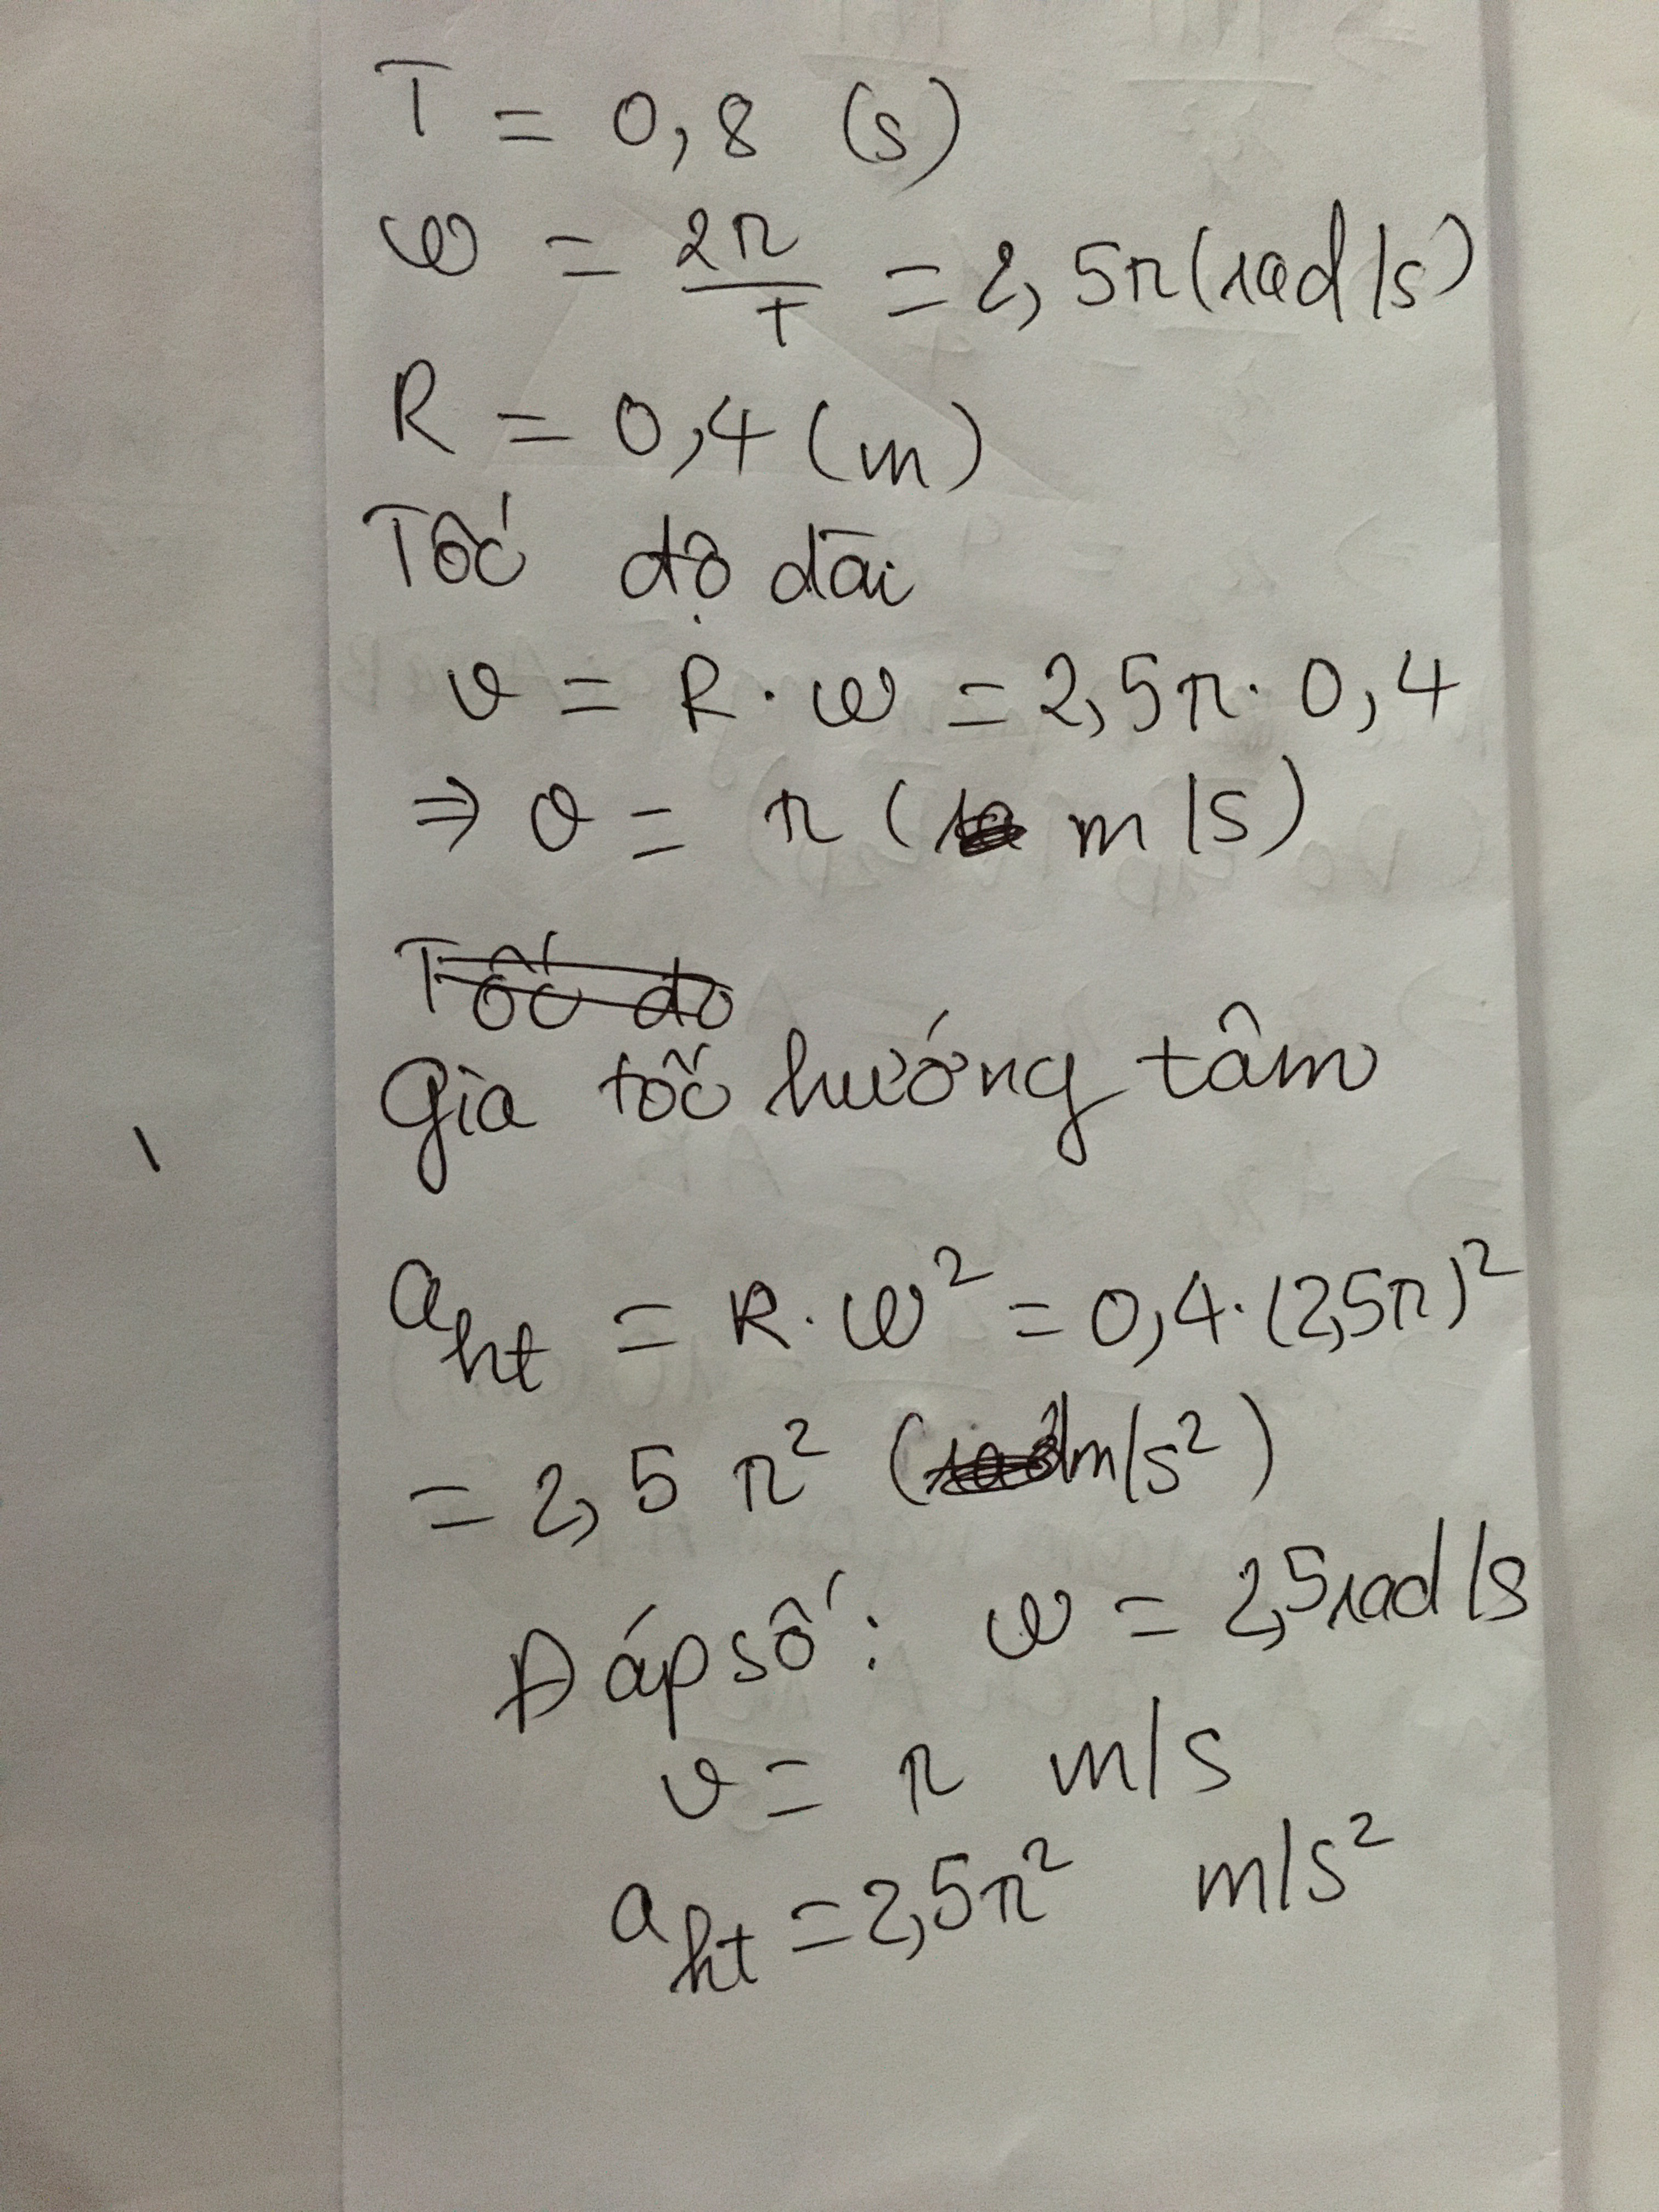 T = 0,8 (s)
ω = 2π/T = 2,5π (rad/s)
R = 0,4 (m)
Tốc độ dài
v = R . ω = 2,5π . 0,4
⇒ v = π ( m/s)
Tốc do
Gia tốc hướng tâm
a_ht = R . ω² = 0,4 . (2,5π)²
= 2,5 π² (m/s²)
Đáp số: ω = 2,5 rad/s
v = π m/s
a_ht = 2,5π² m/s²